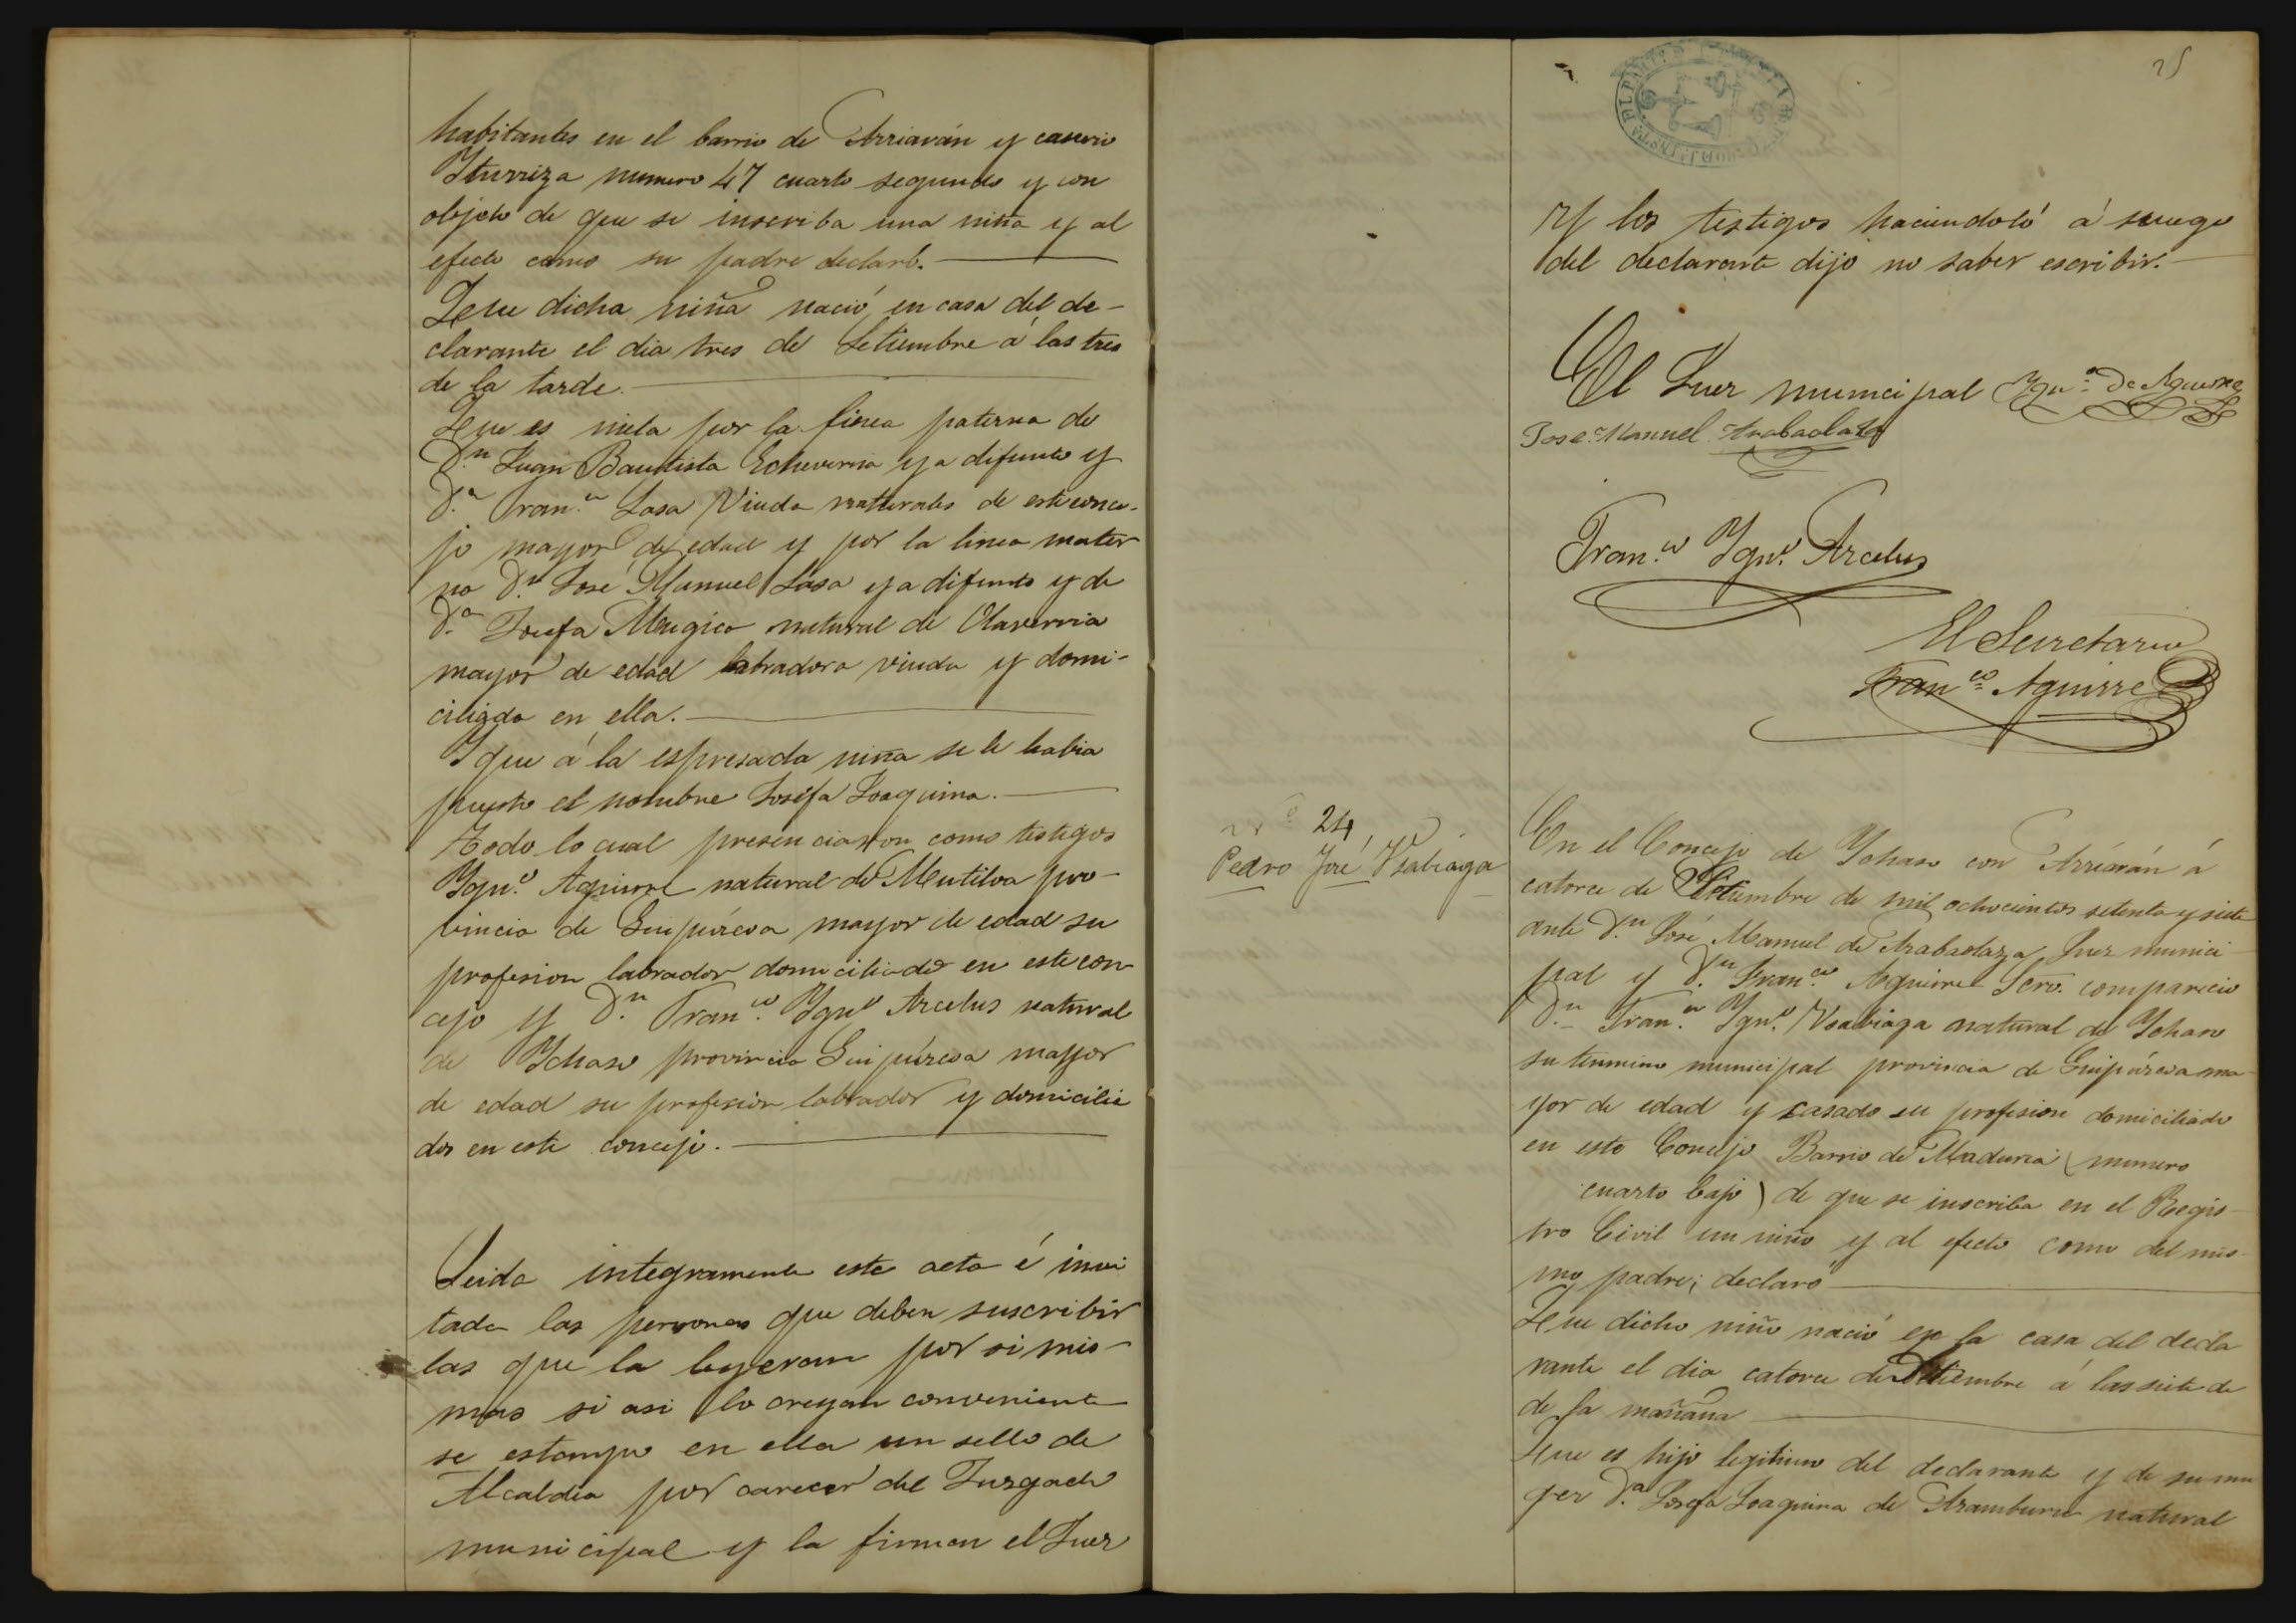 habitantes en el barrio de Arriarán y caserio
Yturriza numero 47 cuarto segundo y con
objeto de que se inscriba una niña y al
efecto como su padre declaró.
Que dicha niña nació en casa del de-
clarante el dia tres de Setiembre á las tres
de la tarde.
Que es nieta por la linea paterna de
D.n Juan Bautista Echeverria ya difunto y
D.a Fran.ca Lasa Viuda naturales de este conce-
jo mayor de edad y por la linea mater
na D.n José Manuel Lasa ya difunto y de
D.a Josefa Mugica natural de Olaverria
mayor de edad labradora viuda y domi-
ciliada en ella.
Y que á la espresada niña se le habia
puesto el nombre Josefa Joaquina.
Todo lo cual presenciaron como testigos
Ygn.o Aguirre natural de Mutiloa pro-
vincia de Guipúzcoa mayor de edad su
profesion labrador domiciliado en este con
cejo y D.n Fran.co Ygn.o Arcelus natural
de Ychaso provincia Guipúzcoa mayor
de edad su profesion labrador y domicilia
dos en este concejo.
Leida integramente este acta é invi
tada las personas que deben suscribir
las que la leyeran por si mis-
mas si asi lo creyan conveniente
se estampo en ella un sello de
Alcaldia por carecer del Juzgado
municipal y la firman el Juez
25
y los testigos haciendoló á ruego
del declarante dijo no saber escribir.
El Juez municipal Ygn.o De Aguirre
Jose Manuel Arabaolaza
Fran.co Ygn.o Arcelus
El Secretario
Fran.co Aguirre
24
Pedro José Usabiaga
En el Concejo de Ychaso con Arriarán á
catorce de Setiembre de mil ochocientos setenta y siete
ante D.n José Manuel de Arabaolaza Juez munici-
pal y D.n Fran.co Aguirre Scrio. comparecio
D.n Fran.co Ygn.o Usabiaga natural de Ychaso
su termino municipal provincia de Guipúzcoa ma-
yor de edad y casado su profesion domiciliado
en esto Concejo Barrio de Maduria (numero
cuarto bajo) de que se inscriba en el Regis-
tro Civil un niño y al efecto como del mis-
mo padre; declaró
Que dicho niño nació en la casa del decla
rante el dia catorce de Setiembre á las siete de
de la mañana
Que es hijo legitimo del declarante y de su mu
ger D.a Josefa Joaquina de Aramburu natural